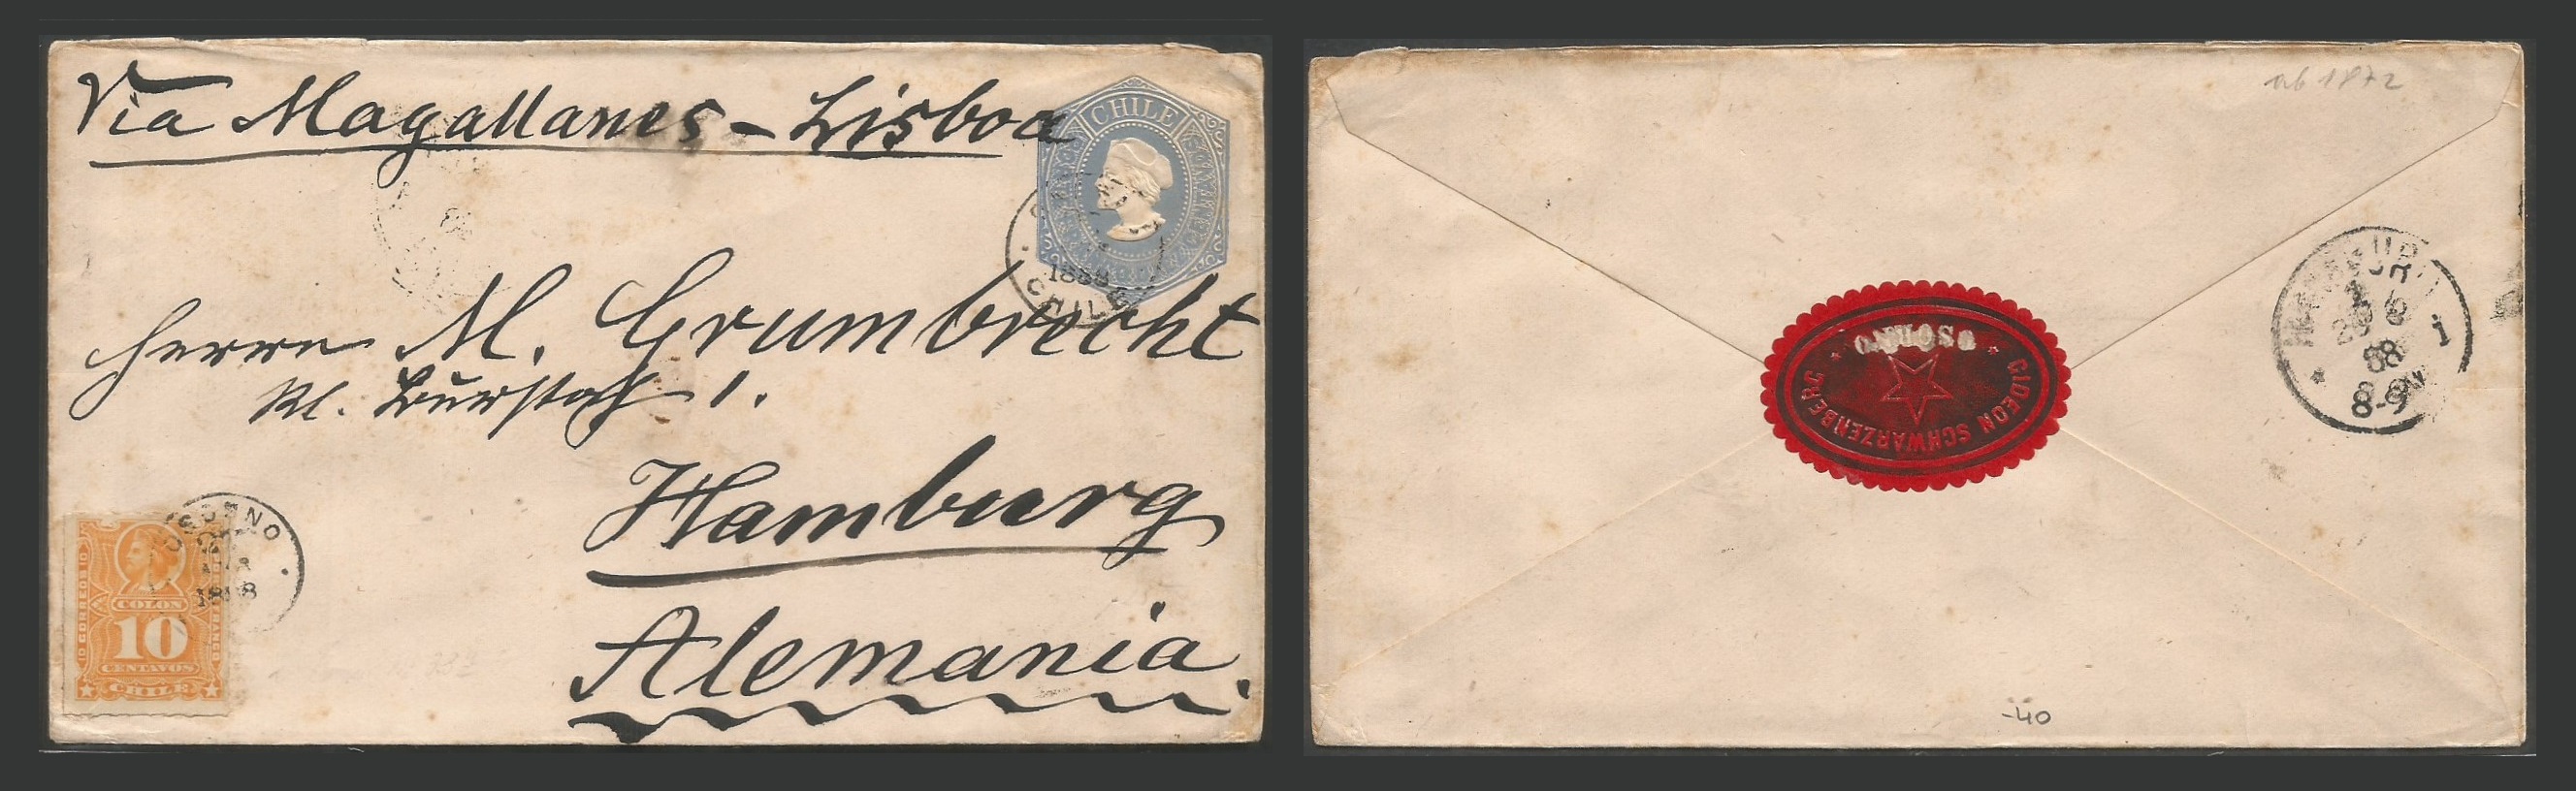 Via Magallanes - Lisboa
CHILE
1888
CHILE
Herrn M. Grumbrecht
Kl. Burstah 1.
Hamburg
Alemania.
OSORNO
1888
COLON
10
CENTAVOS
CHILE
10 CORREOS 10
FRANCO
ab 1872
OSORNO
GIDEON SCHWARZENBERG
HAMBURG
1
88
8-9
-40